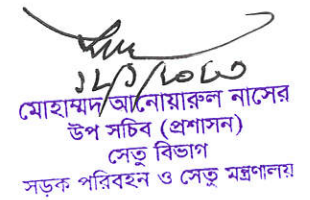 মোহাম্মদ আনোয়ারুল নাসের
উপ সচিব (প্রশাসন)
সেতু বিভাগ
সড়ক পরিবহন ও সেতু মন্ত্রণালয়